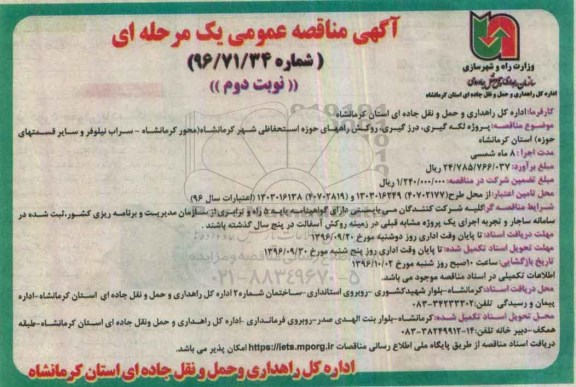 آگهی مناقصه عمومی یک مرحله ای
(شماره ۹۶/۷۱/۳۴)
(( نوبت دوم ))
وزارت راه و شهرسازی
اداره کل راهداری و حمل و نقل جاده ای استان کرمانشاه
کارفرما: اداره کل راهداری و حمل و نقل جاده ای استان کرمانشاه
موضوع مناقصه: پروژه لکه گیری، درز گیری، روکش راههای حوزه استحفاظی شهر کرمانشاه(محور کرمانشاه - سراب نیلوفر و سایر قسمتهای
حوزه) استان کرمانشاه
مدت اجرا : ۸ ماه شمسی
مبلغ برآورد: ۲۴/۷۸۵/۷۶۶/۰۳۷ ریال
مبلغ تضمین شرکت در مناقصه: ۱/۲۴۰/۰۰۰/۰۰۰ ریال
محل اعتبار: از محل طرح(۴۰۷۰۳۱۷۷) ۱۳۰۳۰۱۶۲۴۹ و (۴۰۷۰۲۸۱۹) ۱۳۰۳۰۱۶۱۳۸ (اعتبارات سال ۹۶)
شرایط مناقصه گر: کلیه شرکت کنندگان می بایستی دارای گواهینامه پایه ۵ راه و ترابری از سازمان مدیریت و برنامه ریزی کشور، ثبت شده در
سامانه ساجار و تجربه اجرای یک پروژه مشابه قبلی در زمینه روکش آسفالت در پنج سال گذشته باشند .
مهلت دریافت اسناد: تا پایان وقت اداری روز دوشنبه مورخ ۱۳۹۶/۰۹/۲۰
مهلت تحویل اسناد تکمیل شده: تا پایان وقت اداری روز پنج شنبه مورخ ۱۳۹۶/۰۹/۳۰
تاریخ بازگشایی: ساعت ۱۰صبح روز شنبه مورخ ۱۳۹۶/۱۰/۰۲
اطلاعات تکمیلی در اسناد مناقصه موجود می باشد.
محل دریافت اسناد: کرمانشاه-بلوار شهیدکشوری -روبروی استانداری-ساختمان شماره۲ اداره کل راهداری و حمل و نقل جاده ای استان کرمانشاه-اداره
پیمان و رسیدگی تلفن:۳۴۲۳۳۳۰۲-۰۸۳
محل تحویل اسناد تکمیل شده: کرمانشاه-بلوار بنت الهدی صدر-روبروی فرمانداری -اداره کل راهداری و حمل ونقل جاده ای استان کرمانشاه-طبقه
همکف-دبیر خانه تلفن:۱۴-۳۸۲۴۹۹۱۲-۰۸۳
دریافت اسناد مناقصه از طریق پایگاه ملی اطلاع رسانی مناقصات https://iets.mporg.ir امکان پذیر می باشد.
اداره کل راهداری وحمل و نقل جاده ای استان کرمانشاه
۰۲۱-۸۸۳۴۹۶۷۰-۵